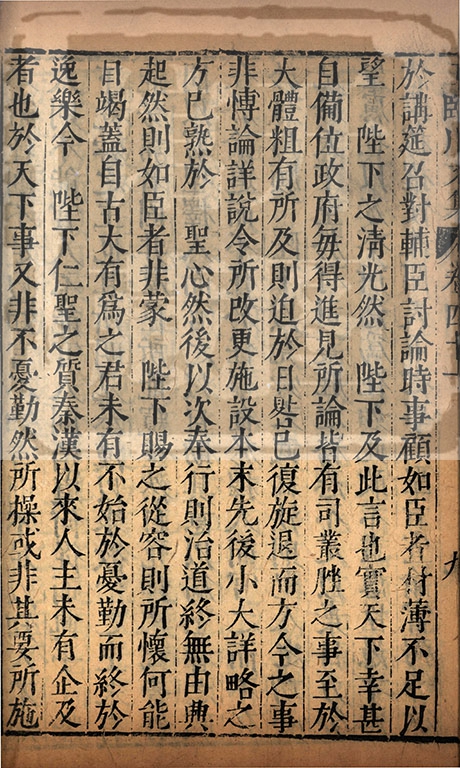 臨川文集 卷四十一 九
於講筵召對輔臣討論時事顧如臣者材薄不足以
望 陛下之清光然 陛下及此言也實天下幸甚
自備位政府每得進見所論皆有司叢脞之事至於
大體粗有所及則迫於日晷已復旋退而方今之事
非博論詳說令所改更施設本末先後小大詳略之
方已熟於 聖心然後以次奉行則治道終無由興
起然則如臣者非蒙 陛下賜之從容則所懷何能
自竭蓋自古大有爲之君未有不始於憂勤而終於
逸樂今 陛下仁聖之質秦漢以來人主未有企及
者也於天下事又非不憂勤然所操或非其要所施